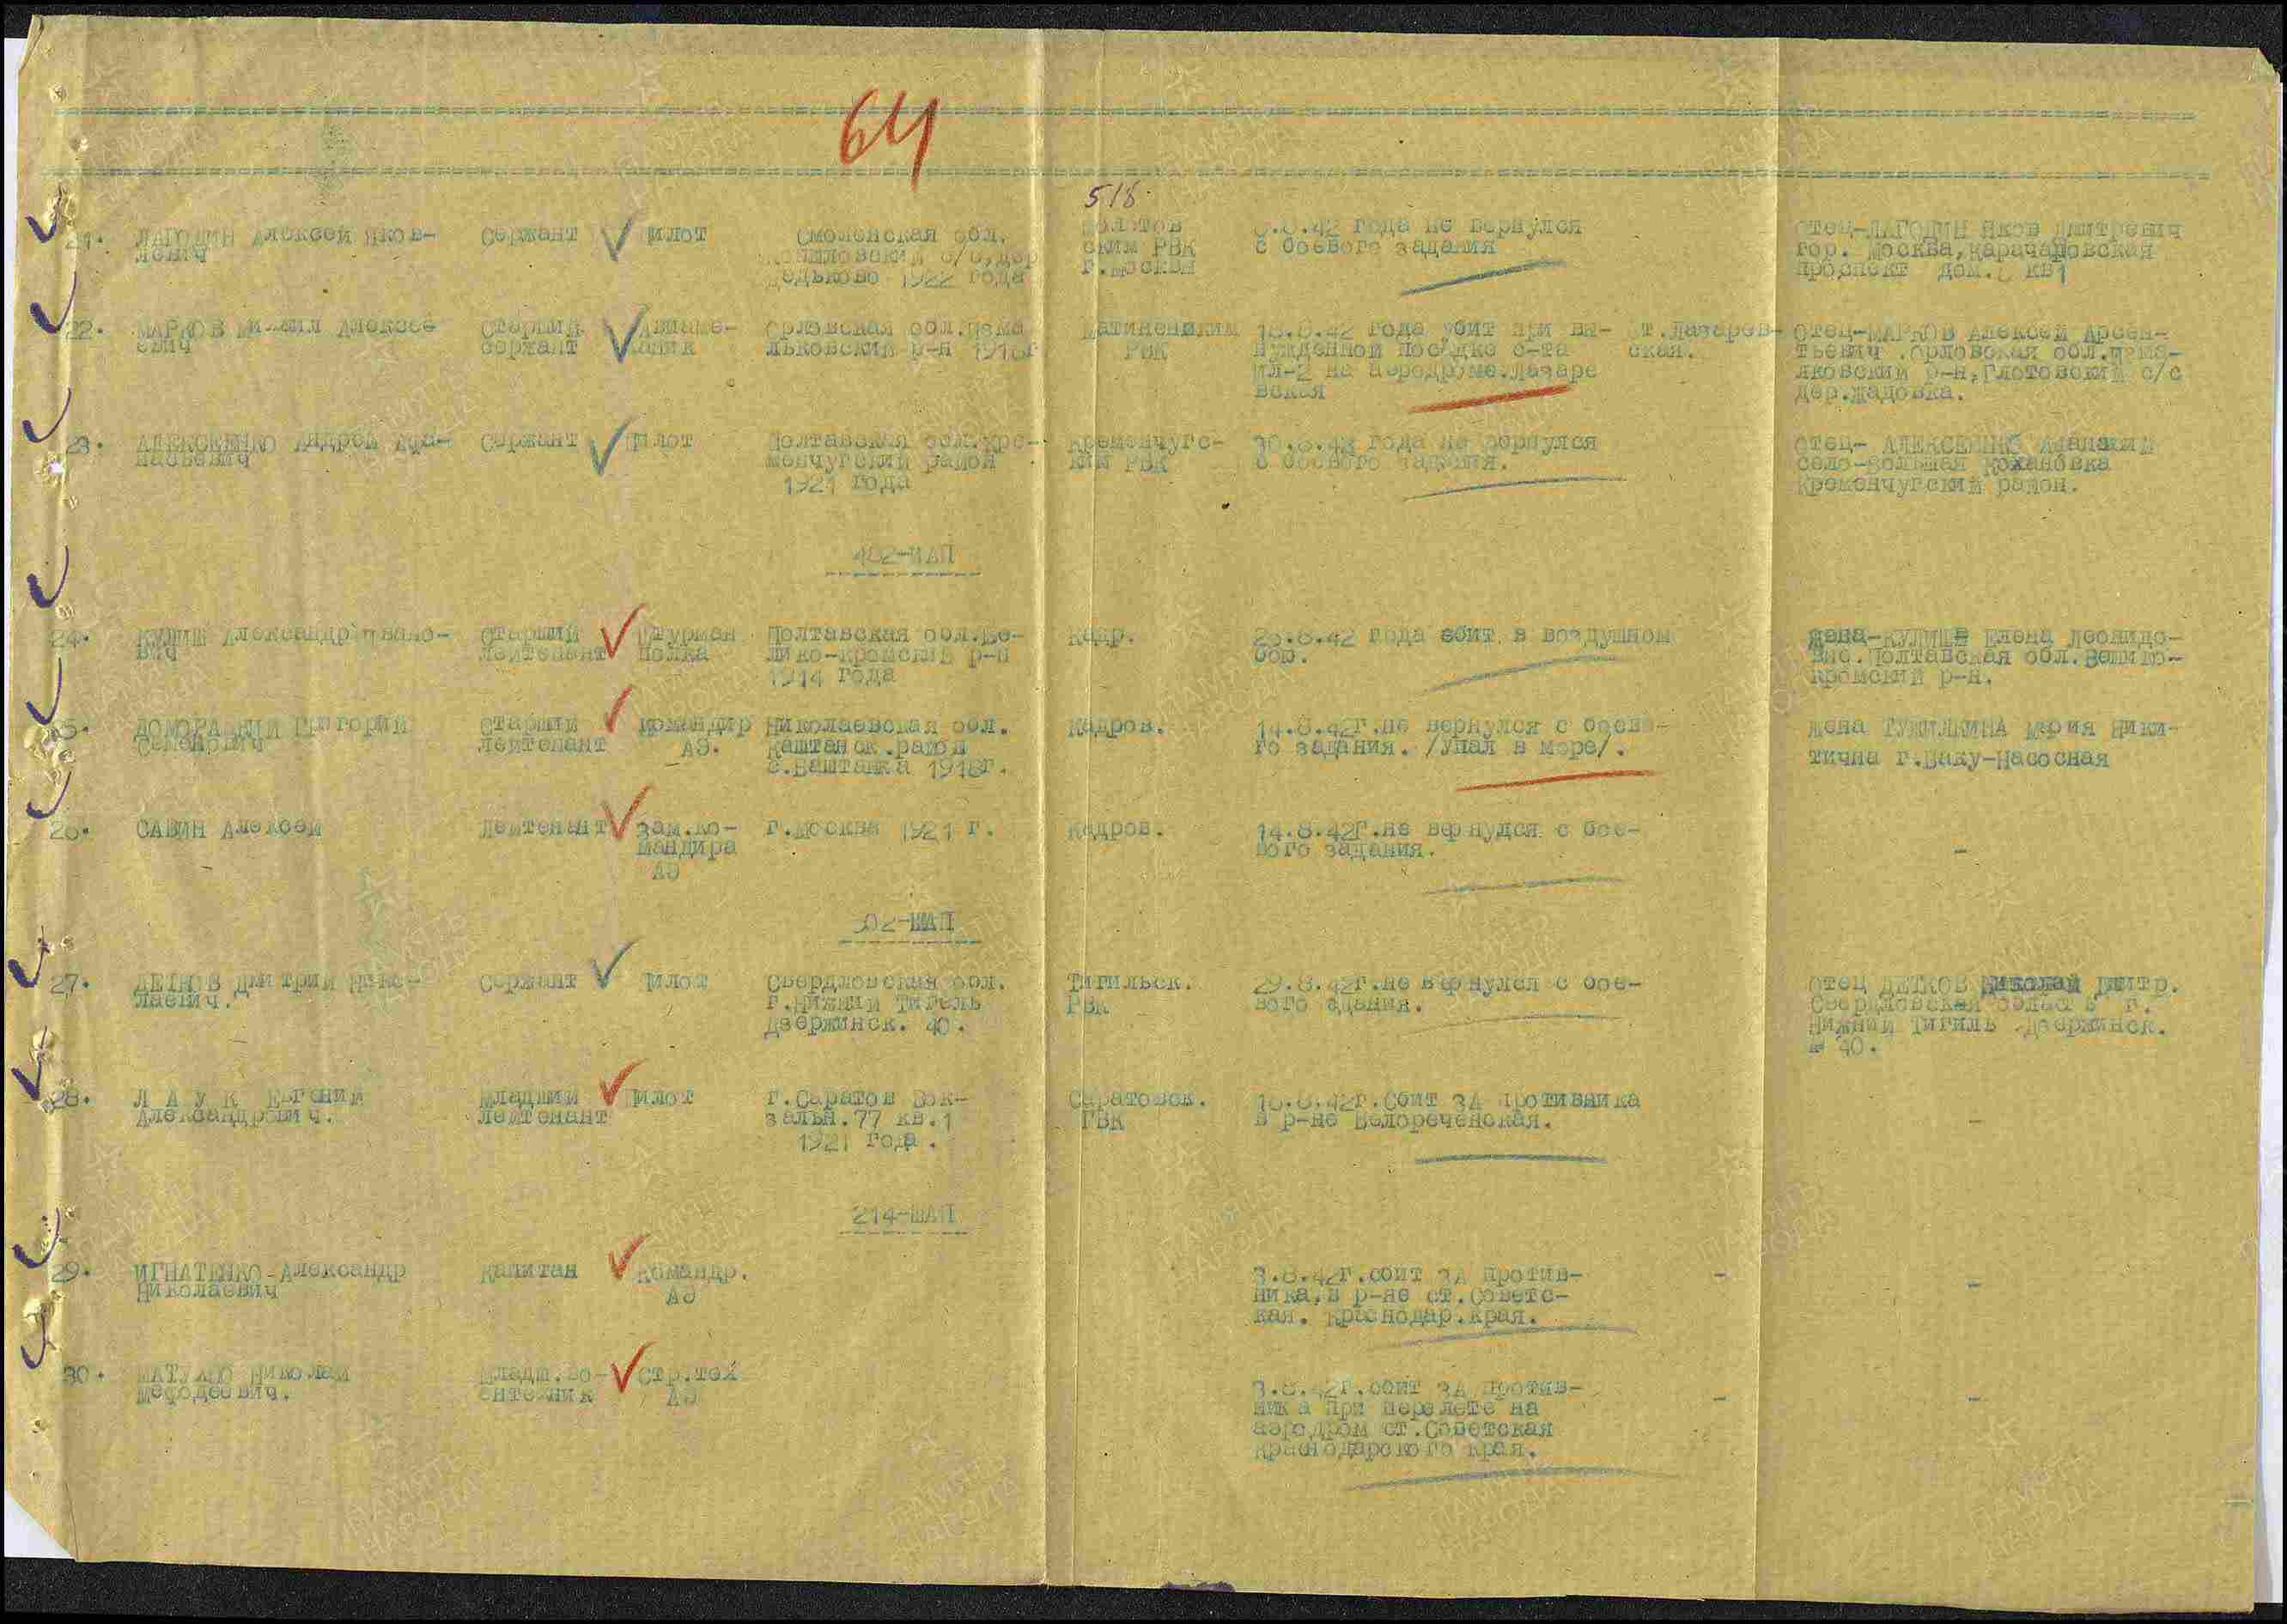 64
518.
21. ЛАГОДИН Алексей Яков-
левич
Сержант
Пилот
Смоленская обл.
с/с, дер
Дедьково 1922 года
ским РВК
г.Москвы
8.42 года не вернулся
с боевого задания
Отец-ЛАГОДИН Яков Дмитревич
гор. Москва, Карачаровская
проспект дом. кв1
22. МАРКОВ Михаил Алексе
евич
Старший
сержант
Авиаме-
ханик
Орловская обл.Изма
льковский р-н 1918г
РВК
года убит при вы-
нужденной посадке с-та
Ил-2 на аэродроме.Лазаре
вская
ст.Лазарев-
ская.
Отец-МАРКОВ Алексей Арсен-
тьевич .Орловская обл.Изма-
лковский р-н,Глотовский с/с
дер.Жадовка.
23. АЛЕКСЕЕНКО Андрей Афа-
насьевич
Сержант
Пилот
Полтавская обл.Кре-
менчугский район
1921 года
Кременчугс-
ким РВК
30.8.42 года не вернулся
с боевого задания.
Отец- АЛЕКСЕЕНКО Афанасий
село-Большая Кохановка
Кременчугский район.
482-ИАП
24. КУЛИШ Александр Ивано-
вич
Старший
лейтенант
Штурман
полка
Полтавская обл.Ве-
лико-кромский р-н
1914 года
Кадр.
года сбит в воздушном
бою.
Жена-КУЛИШ Елена Леонидо-
вно.Полтавская обл.Велико-
кромский р-н.
25. ДОМОРАЦКИЙ Григорий
Семенович
Старший
лейтенант
Командир
АЭ.
Николаевская обл.
Каштанск.район
с.Баштанка 1918г.
Кадров.
14.8.42г.не вернулся с боево-
го задания. /Упал в море/.
Жена ТУЖИЛКИНА Мария Ники-
тична г.Баку-Насосная
26. САВИН Алексей
Лейтенант
Зам.ко-
мандира
АЭ
г.Москва 1921 г.
Кадров.
14.8.42г.не вернулся с бое-
вого задания.
-
502-ШАП
27. ДЕТКОВ Дмитрий Нико-
лаевич.
Сержант
Пилот
Свердловская обл.
г.Нижний Тигель
Дзержинск. 40.
Тигильск.
РВК
29.8.42г.не вернулся с бое-
вого здания.
Отец ДЕТКОВ Николай Дмитр.
Свердловская область г.
Нижний Тигиль Дзержинск.
№ 40.
28. Л А У К Евгений
Александрович.
Младший
лейтенант
Пилот
г.Саратов Вок-
зальн.77 кв.1
1921 года.
Саратовск.
ГВК
8.42г.Сбит ЗА противника
в р-не Белореченская.
-
214-ШАП
29. ИГНАТЕНКО-Александр
Николаевич
Капитан
Командр.
АЭ
3.8.42г.сбит ЗА против-
ника,в р-не ст.Советс-
кая. Краснодар.края.
-
-
30. МАТУХНО Николай
Мефодеевич.
Младш.во-
ентехник
Стр.тех
АЭ
3.8.42г.сбит ЗА против-
ника при перелете на
аэродром ст.Советская
Краснодарского края.
-
-